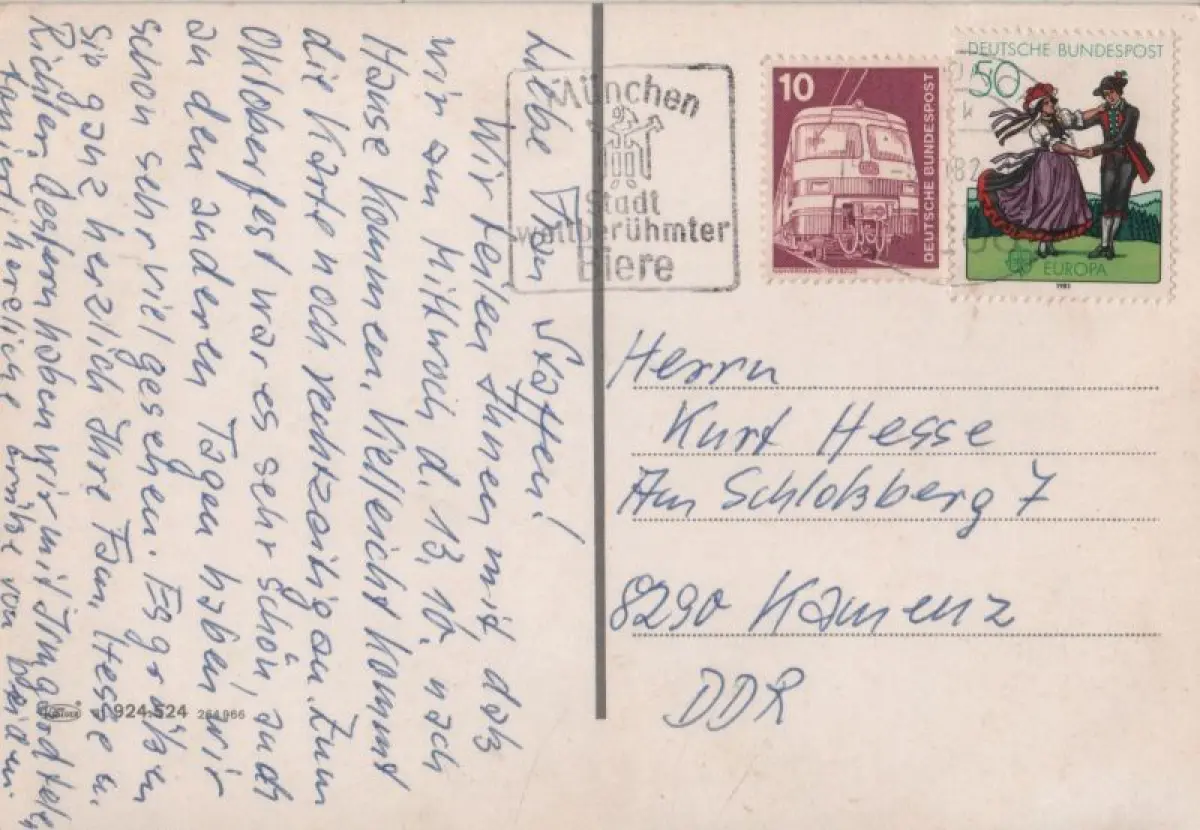 Liebe Frau Steffen!
Wir teilen Ihnen mit daß
wir am Mittwoch d. 13. 10. nach
Hause kommen. Vielleicht kommt
die Karte noch rechtzeitig an. Zum
Oktoberfest war es sehr schön, auch
an den anderen Tagen haben wir
schon sehr viel gesehen. Es grüßen
Sie ganz herzlich Ihre Fam. Hesse u.
Richter. Gestern haben wir mit Irmgard tele
foniert. herzliche Grüße von beiden.
924.524 264 966
München
Stadt
weltberühmter
Biere
10
DEUTSCHE BUNDESPOST
DEUTSCHE BUNDESPOST
50
EUROPA
1981
Herrn
Kurt Hesse
Am Schloßberg 7
8290 Kamenz
DDR